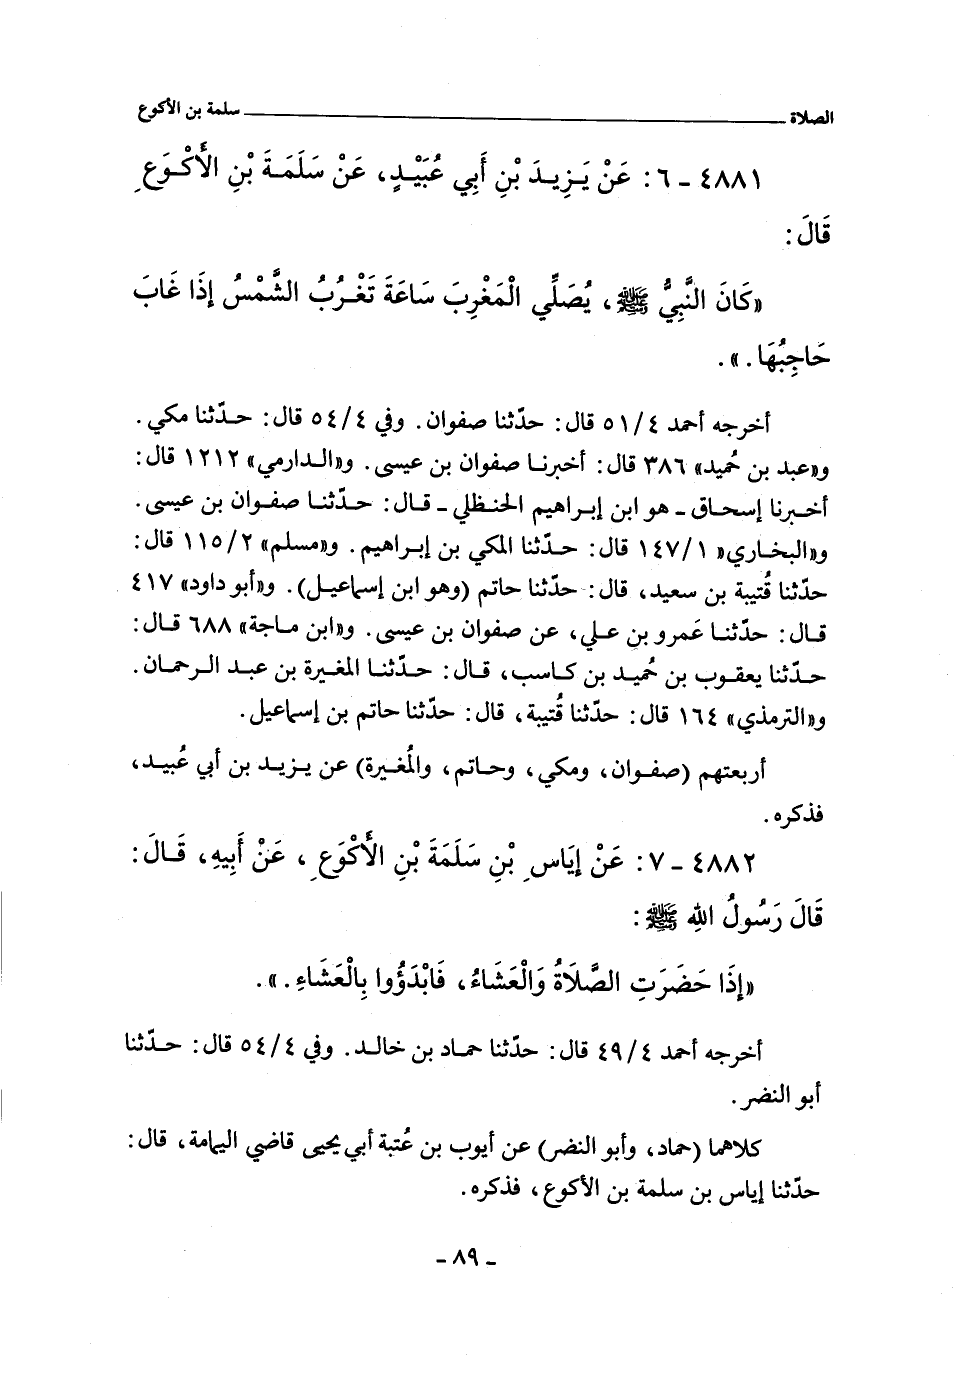 الصلاة ـــــــــ سلمة بن الأكوع
٤٨٨١ ـ ٦: عَنْ يَـزِيـدَ بْنِ أَبِي عُبَيْـدٍ، عَنْ سَلَمَـةَ بْنِ الأَكْـوَعِ
قَالَ:
«كَانَ النَّبِيُّ ﷺ، يُصَلِّي الْمَغْرِبَ سَاعَةَ تَغْـرُبُ الشَّمْسُ إِذَا غَابَ
حَاجِبُهَا.».
أخرجه أحمد ٥١/٤ قال: حدّثنا صفوان. وفي ٥٤/٤ قال: حـدّثنا مكي.
و«عبد بن حُميد» ٣٨٦ قال: أخبرنـا صفوان بن عيسى. و«الـدارمي» ١٢١٢ قال:
أخـبرنا إسحـاق ـ هو ابن إبـراهيم الحنـظلي ـ قـال: حـدّثنـا صفـوان بن عيسى.
و«البخـاري» ١٤٧/١ قال: حـدّثنا المكي بن إبـراهيم. و«مسلم» ١١٥/٢ قال:
حدّثنا قُتيبة بن سعيد، قال: حدّثنا حاتم (وهو ابن إسماعيـل). و«أبو داود» ٤١٧
قـال: حدّثنـا عَمرو بن عـلي، عن صفوان بن عيسى. و«ابن مـاجة» ٦٨٨ قـال:
حـدّثنا يعقـوب بن حُميـد بن كـاسب، قـال: حـدّثنـا المغيرة بن عبـد الـرحمـان.
و«الترمذي» ١٦٤ قال: حدّثنا قُتيبة، قال: حدّثنا حاتم بن إسماعيل.
أربعتهم (صفـوان، ومكي، وحـاتم، والمُغـيرة) عن يـزيـد بن أبي عُبيـد،
فذكره.
٤٨٨٢ ـ ٧: عَنْ إِيَاسِ بْنِ سَلَمَةَ بْنِ الأَكْوَعِ، عَنْ أَبِيهِ، قَـالَ:
قَالَ رَسُولُ اللهِ ﷺ:
«إِذَا حَضَرَتِ الصَّلاَةُ وَالْعَشَاءُ، فَابْدَؤُوا بِالْعَشَاءِ.».
أخرجه أحمد ٤٩/٤ قال: حدّثنا حمـاد بن خالـد. وفي ٥٤/٤ قال: حـدّثنا
أبو النضر.
كلاهما (حماد، وأبو النضر) عن أيوب بن عُتبة أبي يحيى قاضي اليمامة، قال:
حدّثنا إياس بن سلمة بن الأكوع، فذكره.
ـ ٨٩ ـ